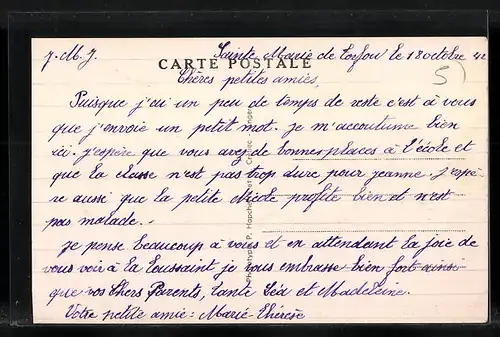 J. M. J.
Sainte Marie de Torfou le 18 octobre 42
CARTE POSTALE
5
Chères petites amies,
Puisque j'ai un peu de temps de reste c'est à vous
que j'envoie un petit mot. Je m'accoutume bien
ici. j'espère que vous avez de bonnes places à l'école et
que la classe n'est pas trop dure pour jeanne. J'espè-
re aussi que la petite Nicole profite bien et n'est
pas malade. -
Je pense beaucoup à vous et en attendant la joie de
vous voir à la Toussaint je vous embrasse bien fort ainsi
que vos Chers Parents, tante Léa et Madeleine.
Votre petite amie : Marie-Thérèse